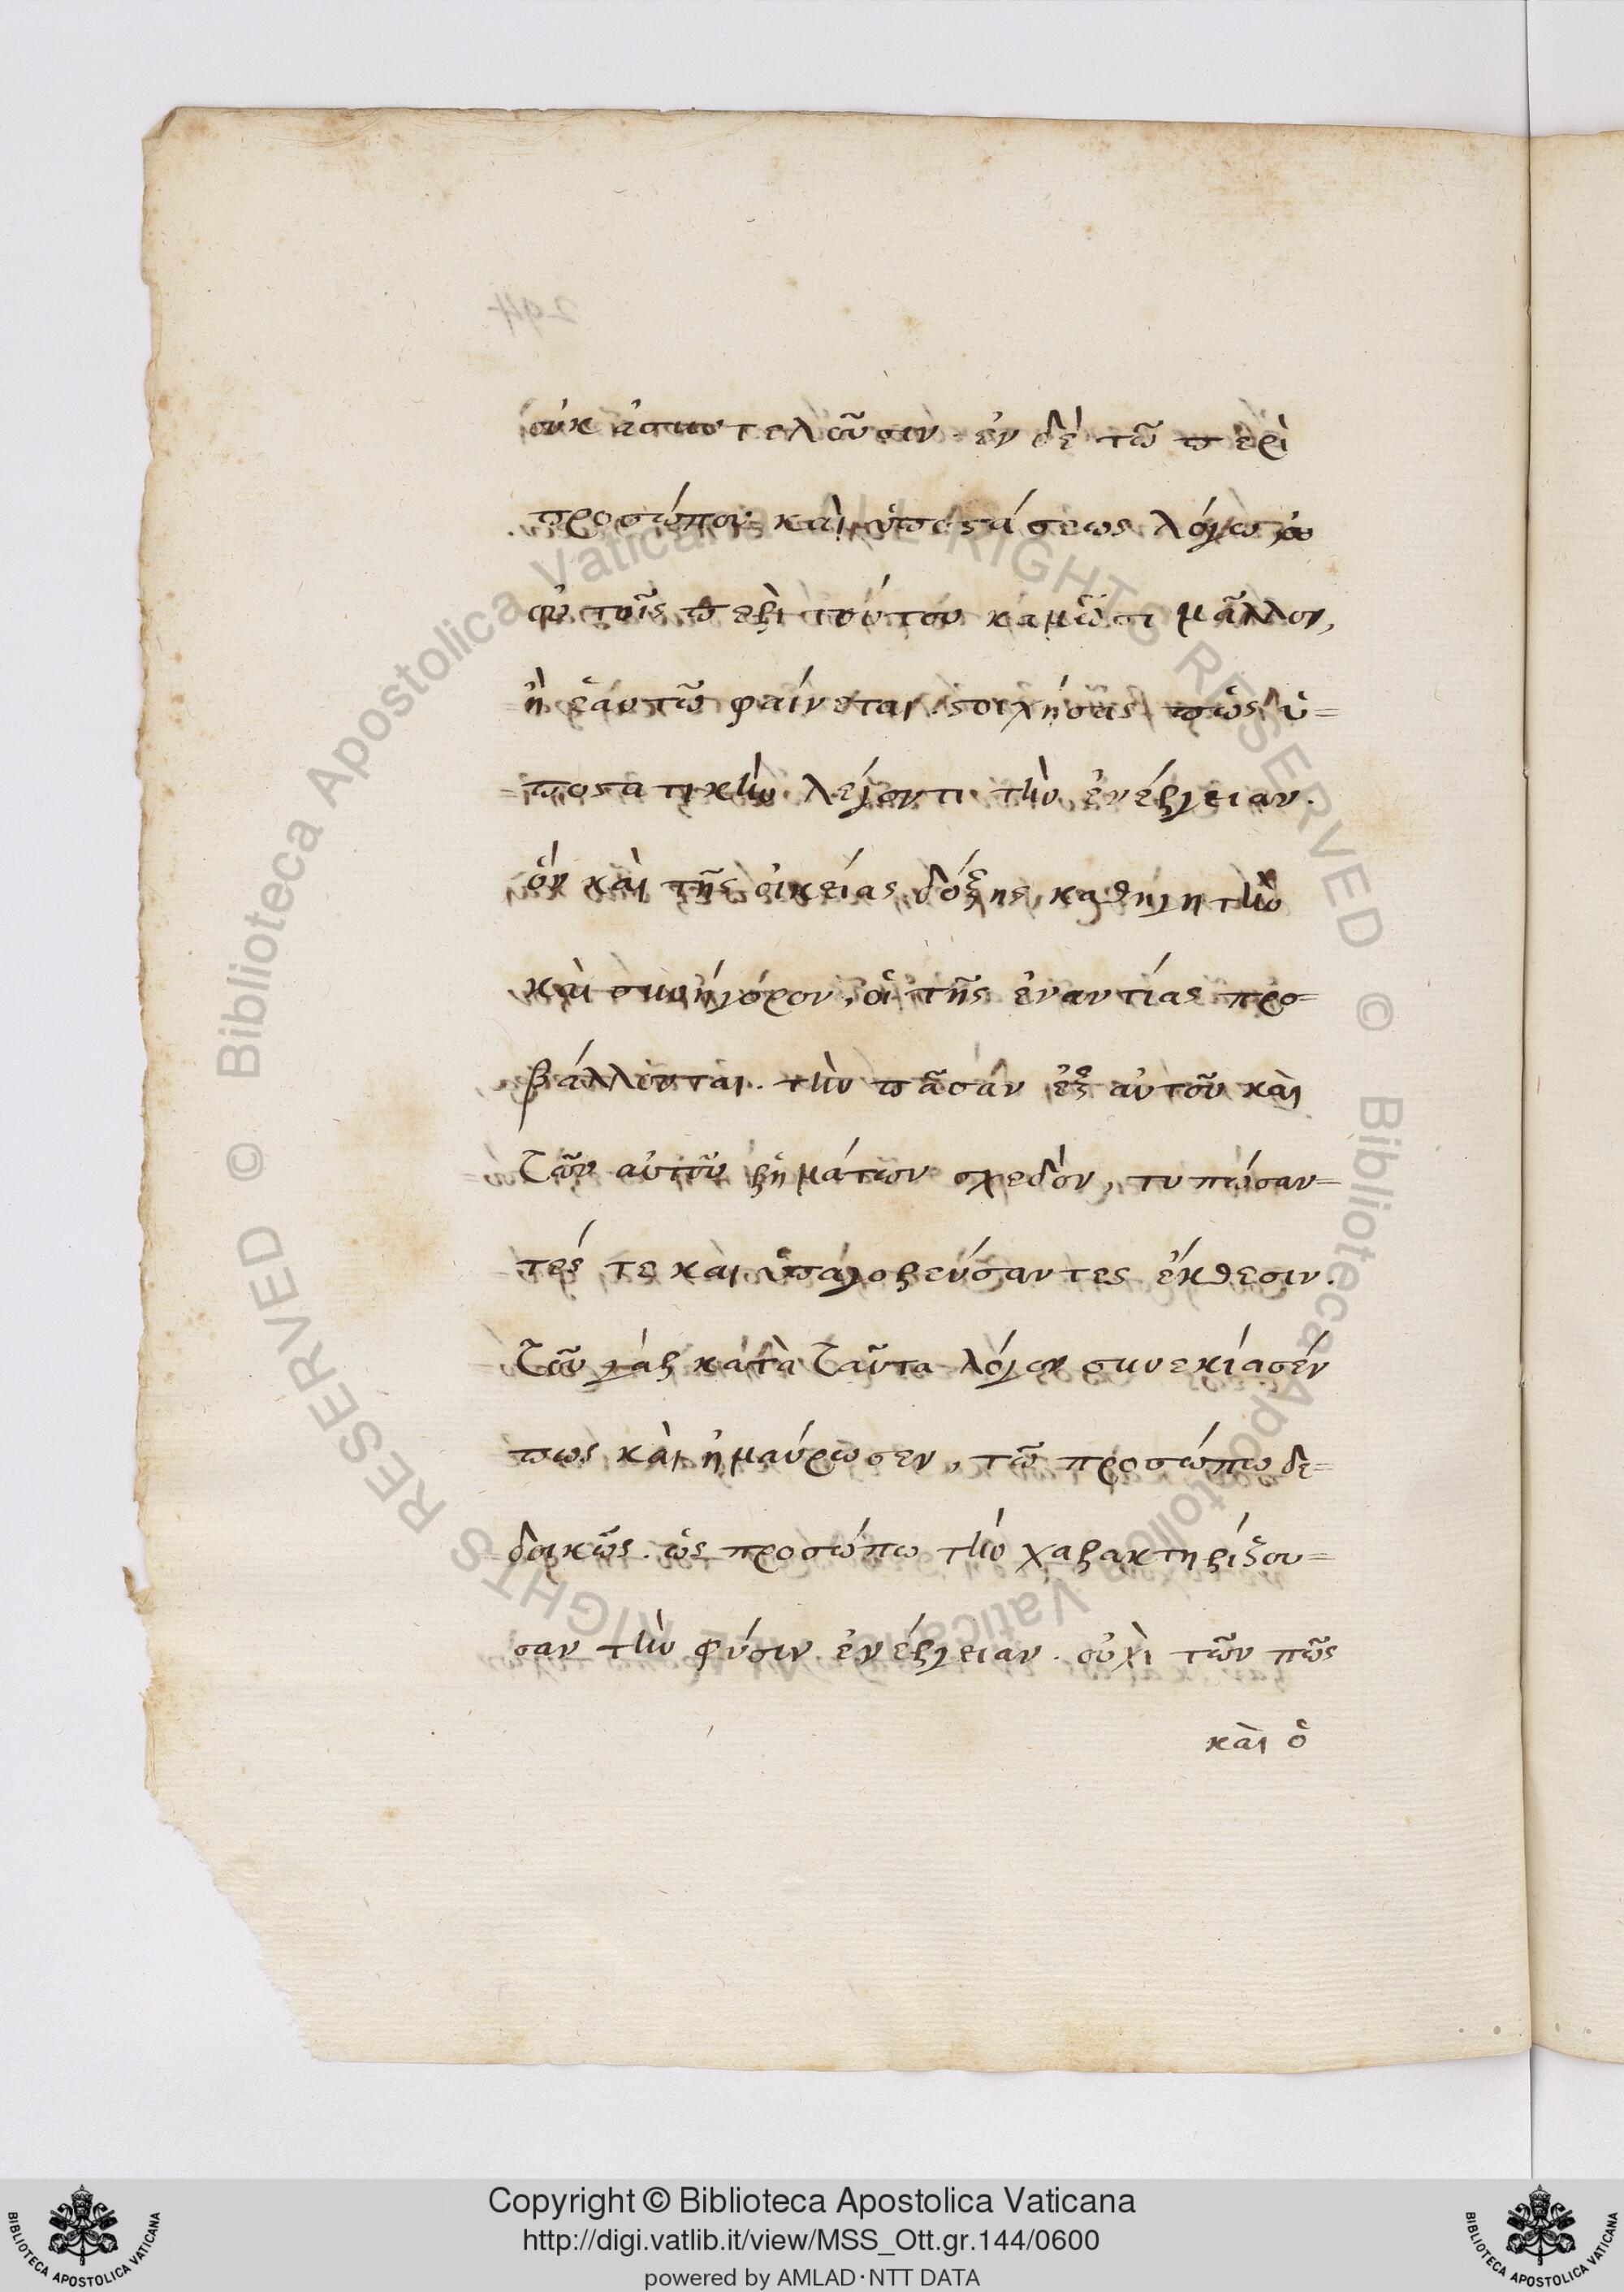 οὐκ ἀποτελοῦσιν. ἐν δὲ τῶ περὶ
προσώπου καὶ ὑποστάσεως λόγω, οὐ
τοῖς περὶ τούτου καμῶσι μᾶλλον,
ἢ ἑαυτῶ φαίνεται στοιχήσας πῶς ὑ=
ποστατικὴν λέγοντι τὴν ἐνέργειαν.
ὃν καὶ τῆς οἰκείας δόξης καθηγητὴν
καὶ συνήγορον, οἱ τῆς ἐναντίας προ=
βάλλονται. τὴν πᾶσαν ἐξ αὐτοῦ καὶ
τῶν αὐτοῦ ῥημάτων σχεδὸν, τυπώσαν=
τές τε καὶ ὑπαγορεύσαντες ἔκθεσιν.
τὸν γὰρ κατὰ ταῦτα λόγον συνεκίασέν
πως καὶ ἠμαύρωσεν, τῶ προσώπω δε=
δοικῶς. ὡς προσώπω τὴν χαρακτηρίζου=
σαν τὴν φύσιν ἐνέργειαν. οὐχὶ τῶν πῶς
καὶ ὁ
294
© Biblioteca Apostolica Vaticana ALL RIGHTS RESERVED
© Biblioteca Apostolica Vaticana ALL RIGHTS RESERVED
BIBLIOTECA APOSTOLICA VATICANA
Copyright © Biblioteca Apostolica Vaticana
http://digi.vatlib.it/view/MSS_Ott.gr.144/0600
powered by AMLAD·NTT DATA
BIBLIOTECA APOSTOLICA VATICANA